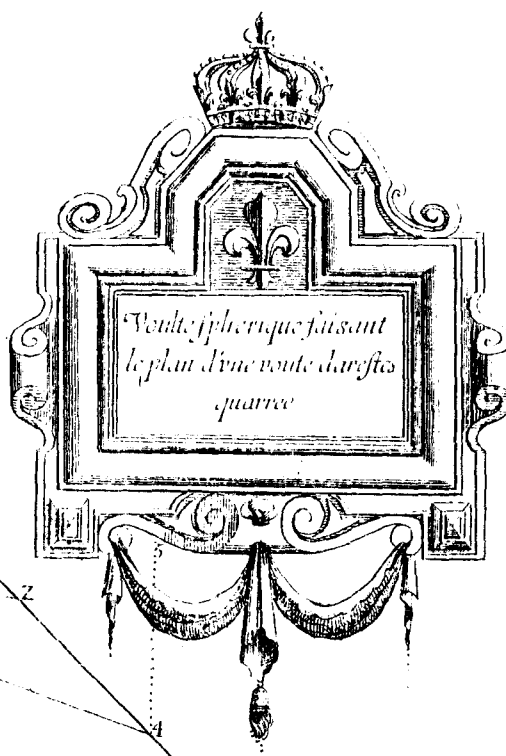 Voulte spherique faisant
le plan d'vne voute darestes
quarree
5
2
4